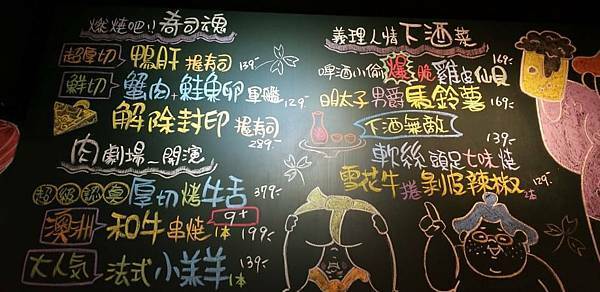 燃燒吧!壽司魂
超厚切 鴨肝握壽司 139-
鮮切 蟹肉+鮭魚卵軍艦 129-
解除封印握壽司 289-
肉劇場一開演
厚切烤牛舌 379-
澳洲 和牛串燒 9+ 1本 199-
大人氣 法式小羊排 1本 139-
義理人情下酒菜
啤酒小偷爆脆雞皮仙貝 169-
明太子男爵馬鈴薯 169-
下酒無敵
軟絲頭足七味燒 139-
雪花牛捲剝皮辣椒 2本 129-